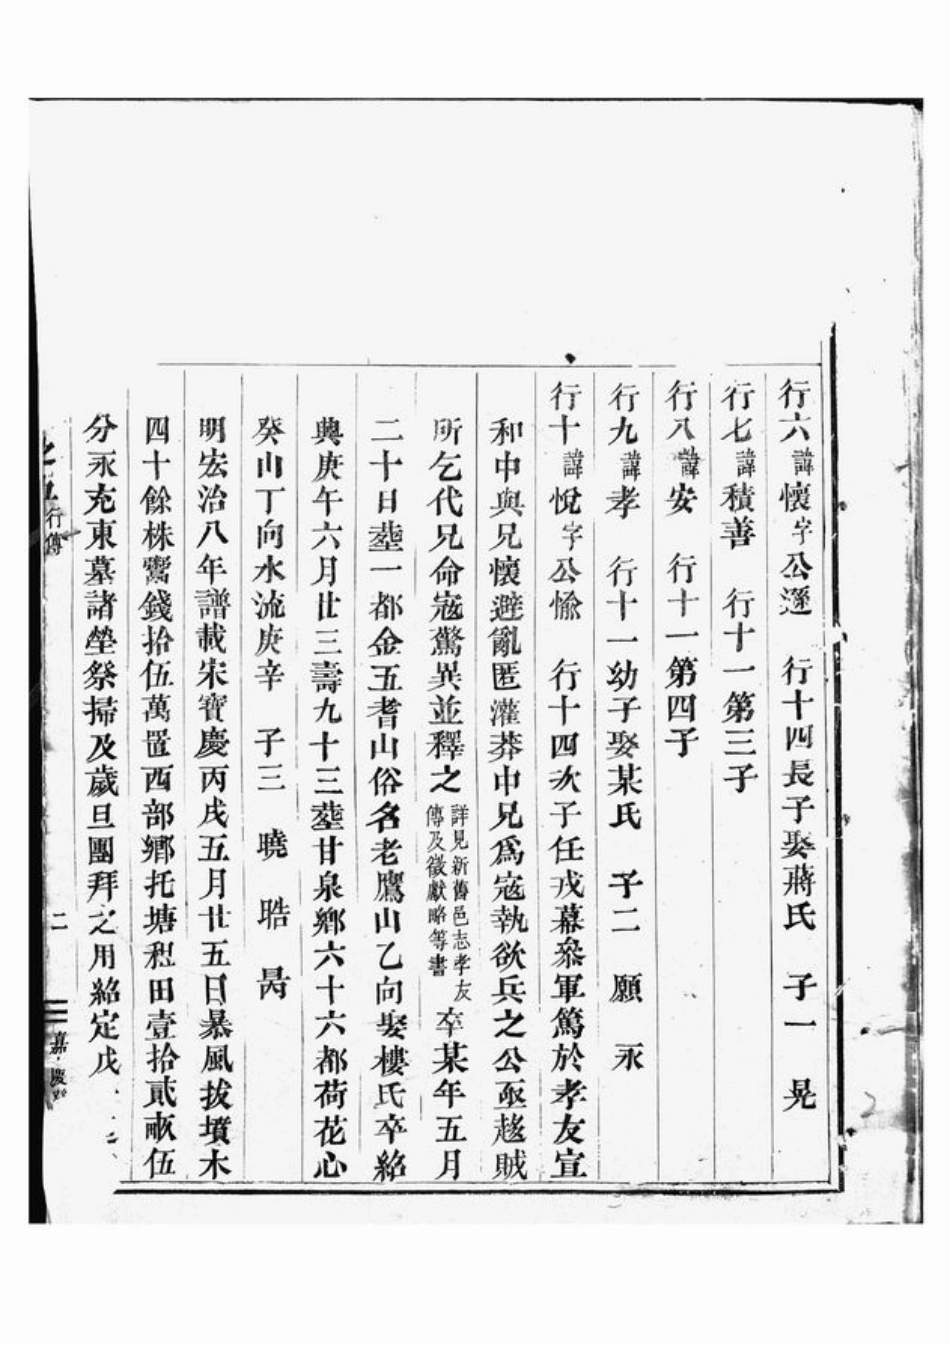 行六諱懷字公遜　行十四長子娶蔣氏　子一　晃
行七諱積善　行十一第三子
行八諱安　行十一第四子
行九諱孝　行十一幼子娶某氏　子二　願　永
行十諱悅字公愉　行十四次子任戎幕叅軍篤於孝友宣
和中與兄懷避亂匿灌莽中兄爲寇執欲兵之公亟趨賊
所乞代兄命寇驚異並釋之詳見新舊邑志孝友傳及徵獻略等書卒某年五月
二十日塟一都金五耆山俗名老鷹山乙向娶樓氏卒紹
興庚午六月廿三壽九十三塟甘泉鄉六十六都荷花心
癸山丁向水流庚辛　子三　曉　晧　昺
明宏治八年譜載宋寶慶丙戌五月廿五日暴風拔墳木
四十餘株鬻錢拾伍萬置西部鄉托塘租田壹拾貳畝伍
分永充東墓諸塋祭掃及歲旦團拜之用紹定戊
行傳
二
嘉慶